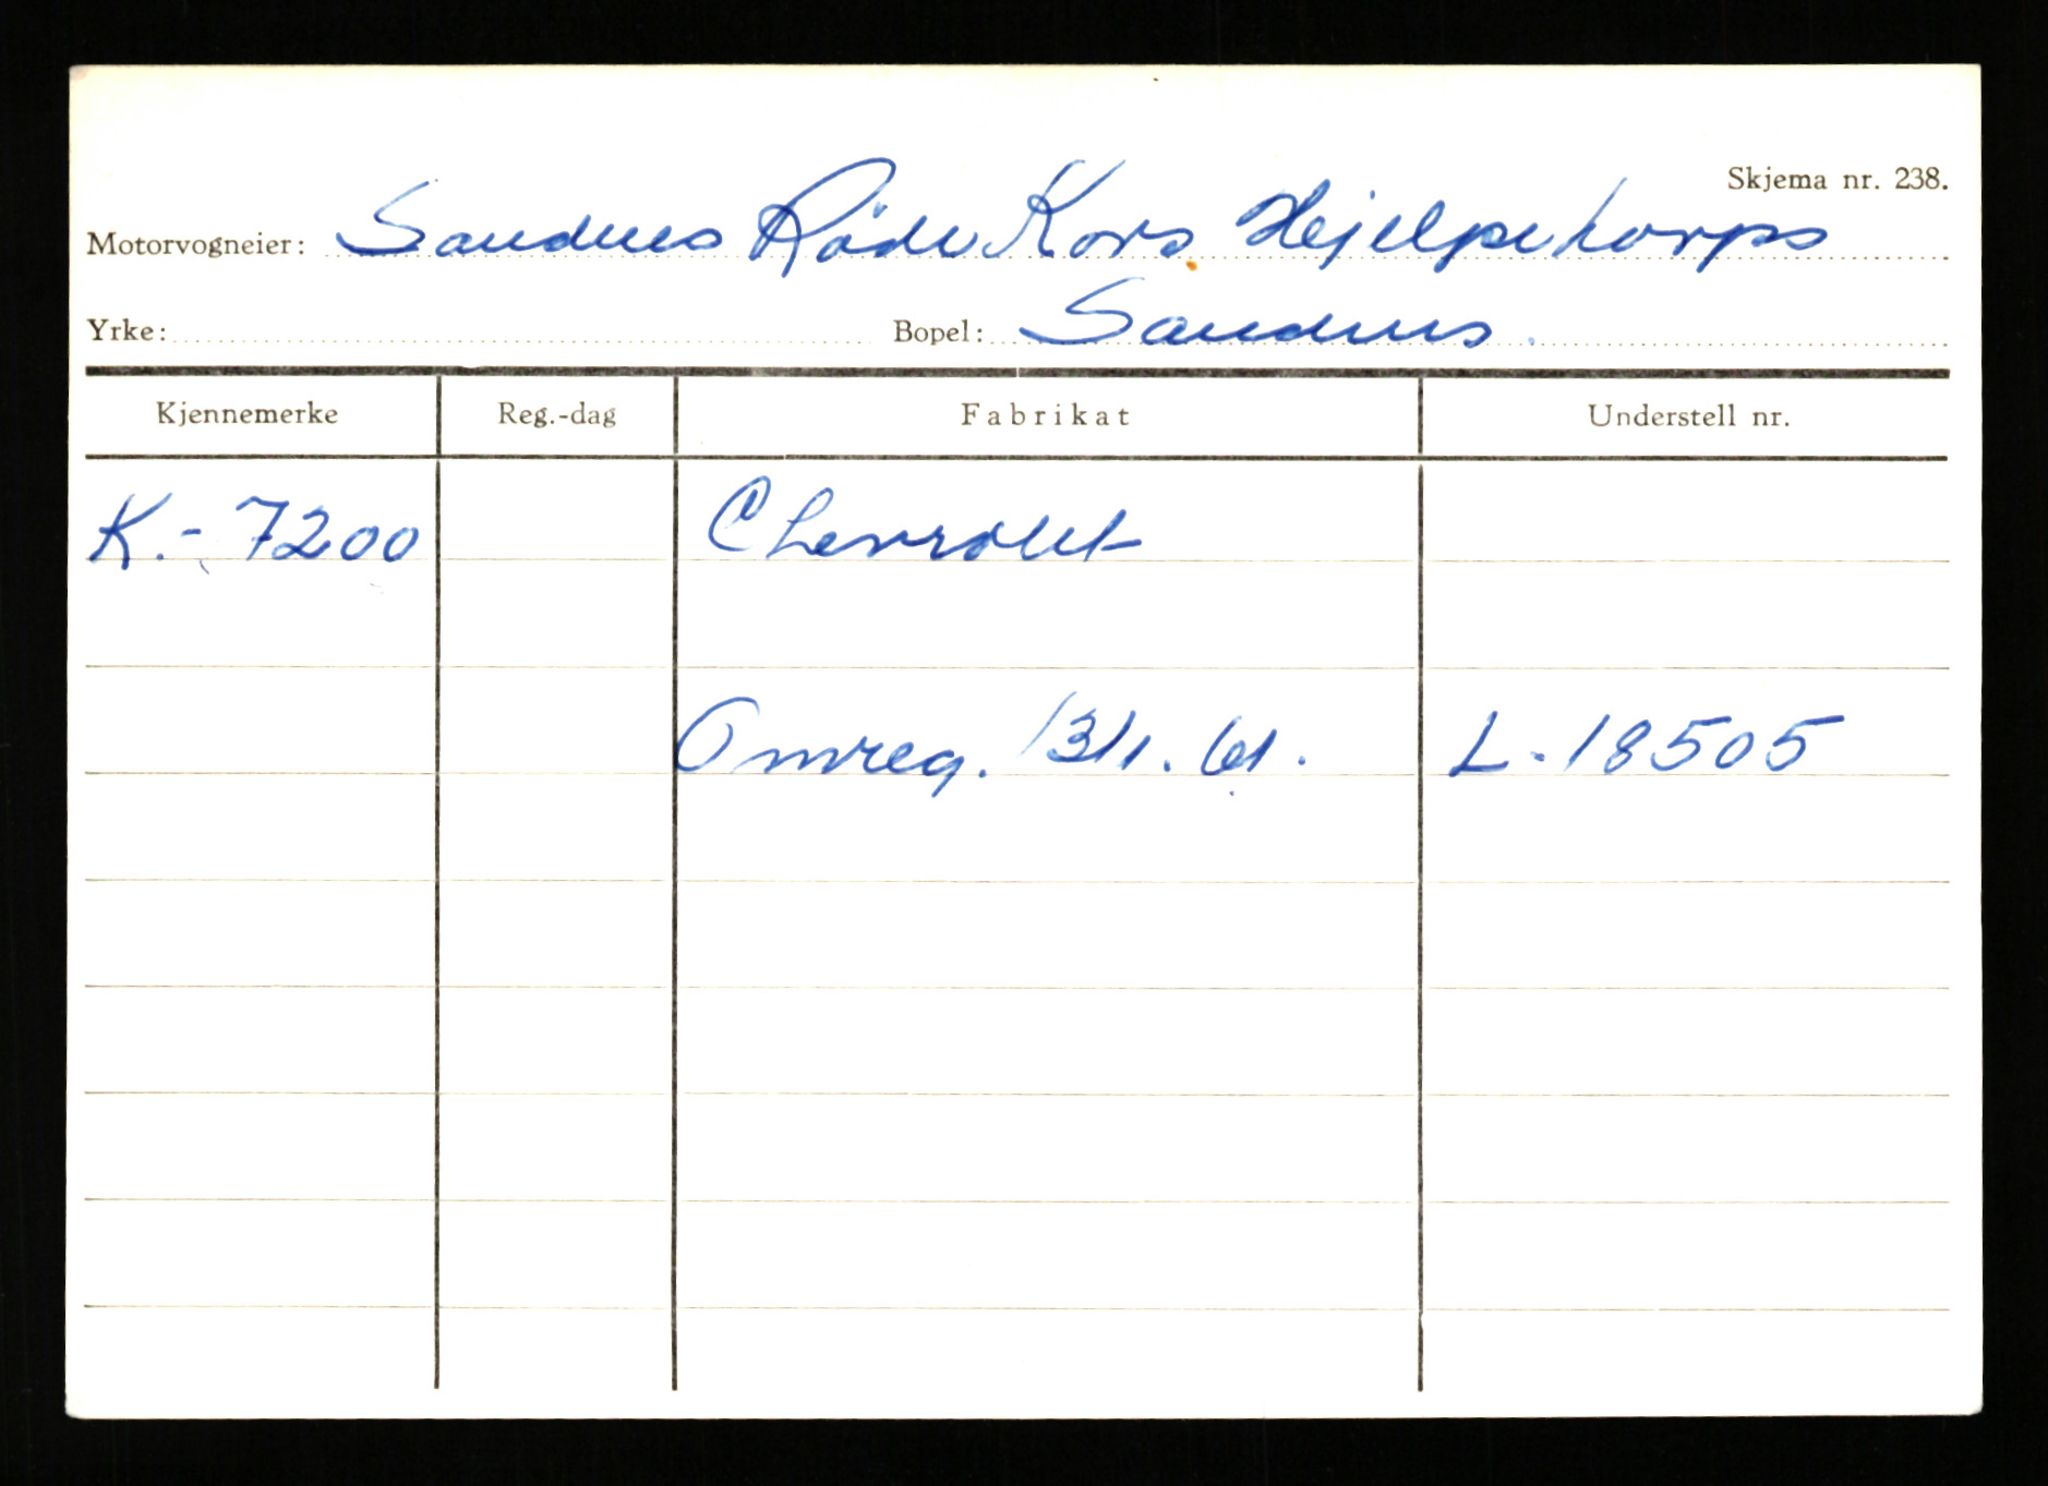 Skjema nr. 238.
Motorvogneier: Sandnes Røde Kors Hjelpekorps
Yrke: Bopel: Sandnes.
Kjennemerke Reg.-dag Fabrikat Understell nr.
K.- 7200 Chevrolet
Omreg. 13/1. 61. L-18505